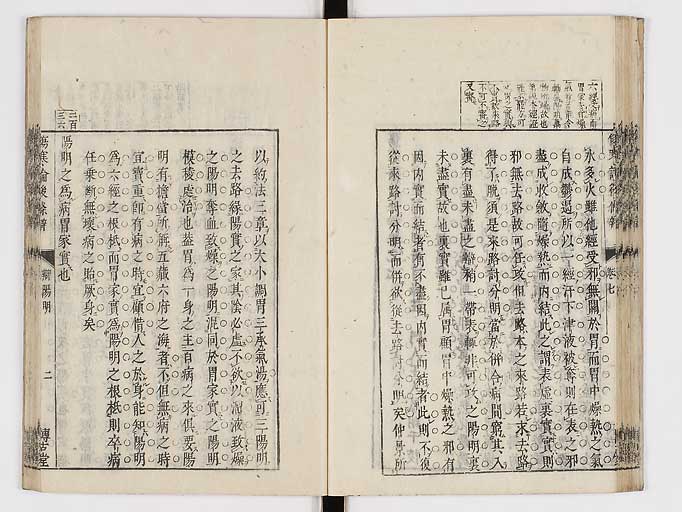 水多火雖他經受邪無關於胃而胃中燥熱之氣
自成鬱遏所以一經汗下津液被奪則在表之邪
盡成收斂隨燥熱而內結此之謂表虛裏實實則
邪無去路故可任攻但去路本之來路若求去路
得了脫須是來路討分明當於併合病間窮其入
裏有盡未盡之辯稍一帶表輒非可攻之陽明裏
未盡實故也裏實雖已屬胃顧胃中燥熱之邪有
因內實而結者有不盡因內實而結者此則不復
從來路討分明而併欲從去路討分明矣仲景所
卷七
以約法三章以大小調胃三承氣湯應可三陽明
之去路緣陽實之家其陰必虛不欲以溜液致燥
之陽明奪血致燥之陽明混同於胃家實之陽明
模稜處治也蓋胃為一身之主百病之來俱要陽
明有擔當所解五藏六府之海者不但無病之時
宜寶重即有病之時宜顧惜人之於身能知陽明
為六經之根柢而胃家實為陽明之根柢則卒病
任乘斷無壞病之貽厥身矣
陽明之為病胃家實也
二百
三六
傷寒論後條辯
辯陽明
二